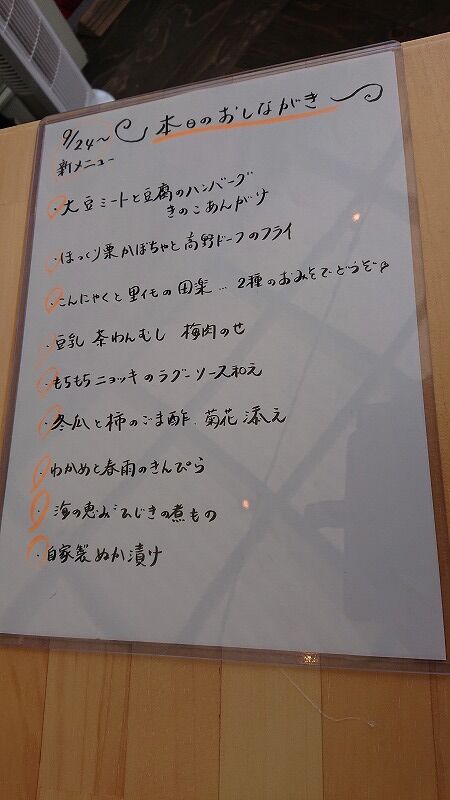 9/24〜 本日のおしながき
新メニュー
・大豆ミートと豆腐のハンバーグ
きのこあんがけ
・ほっくり栗かぼちゃと高野ドーフのフライ
・こんにゃくと里イモの田楽…2種のおみそでどうぞ♪
・豆乳茶わんむし 梅肉のせ
・もちもちニョッキのラグーソース和え
・冬瓜と柿のごま酢.菊花添え
・わかめと春雨のきんぴら
・海の恵み"ひじきの煮もの
・自家製ぬか漬け